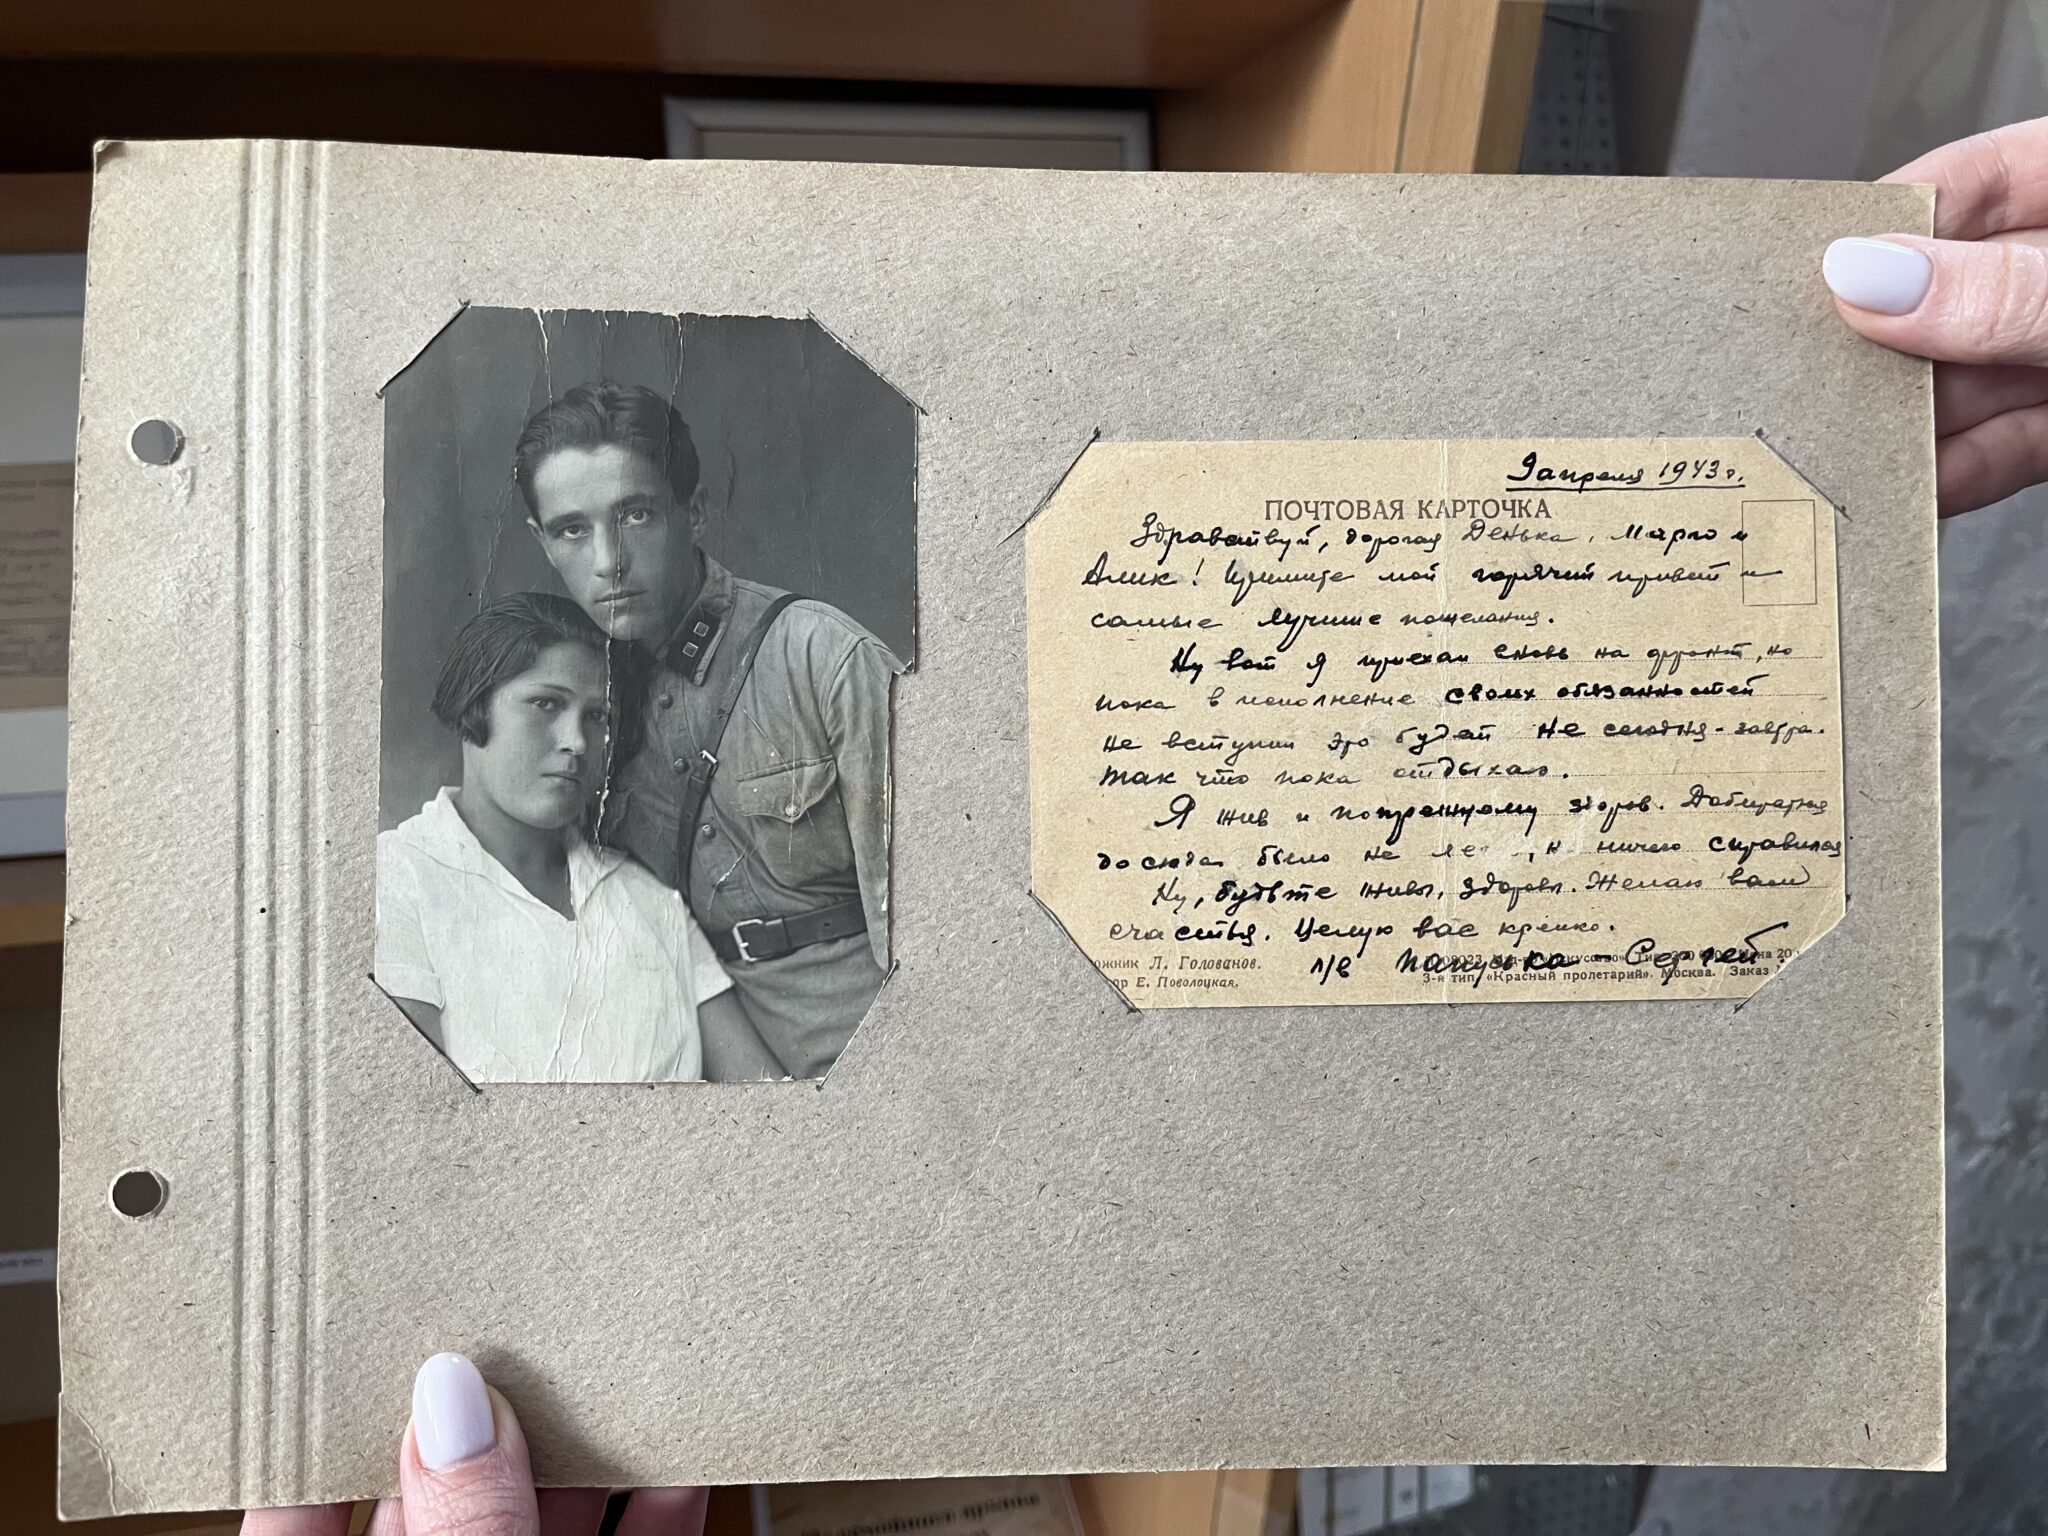 9 апреля 1943 г.
ПОЧТОВАЯ КАРТОЧКА
Здравствуй, дорогая Денька, Марго и
Алик! Примите мой горячий привет и
самые лучшие пожелания.
Ну вот я приехал вновь на фронт, но
пока в исполнение своих обязанностей
не вступил это будет не сегодня-завтра.
Так что пока отдыхаю.
Я жив и попрежнему здоров. Добираться
до сюда было не ничего справился
Ну, будьте живы, здоровы. Желаю вам
счастья. Целую вас крепко.
п/в Папуська Сергей
ожник Л. Голованов.
ор Е. Поволоцкая.
3-я тип. «Красный пролетарий». Москва. Заказ